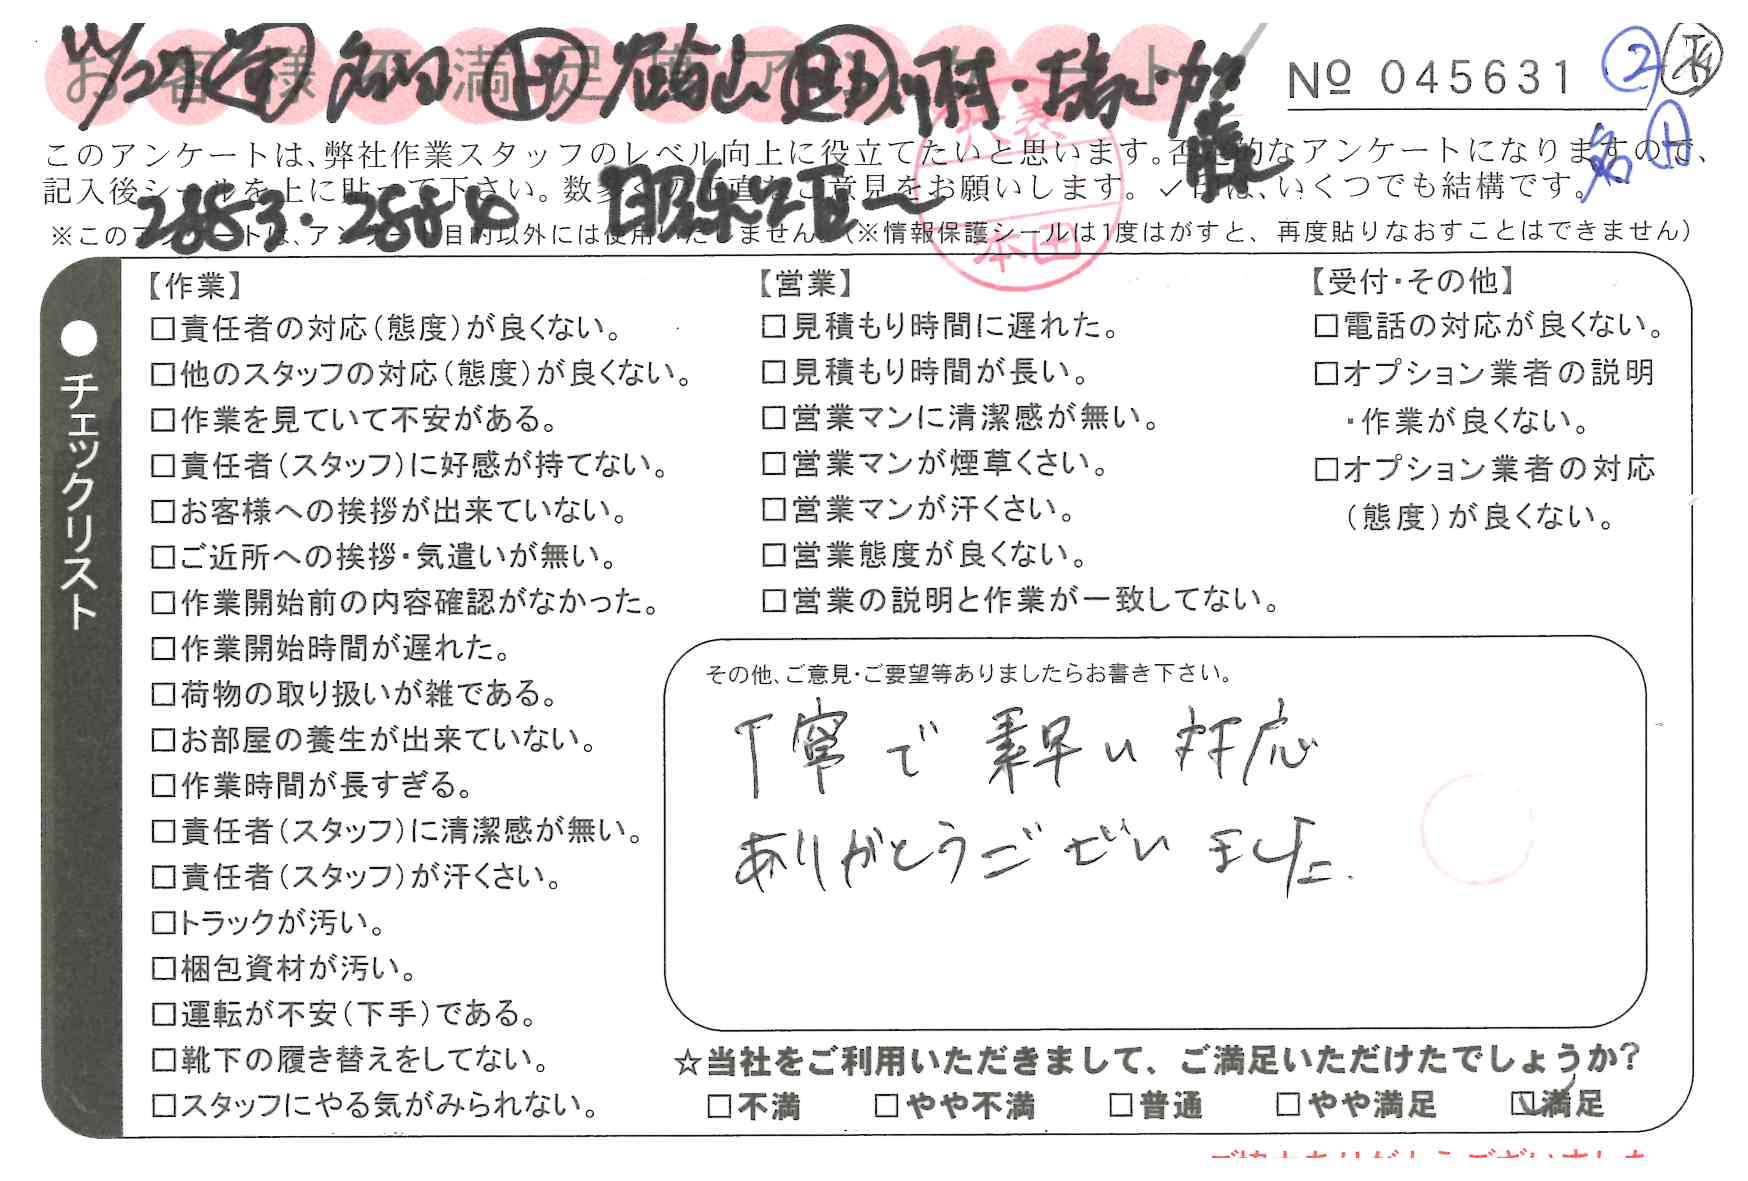 お客様不満足度アンケート
No 045631 ②
このアンケートは、弊社作業スタッフのレベル向上に役立てたいと思います。否定的なアンケートになりますので、
記入後シールを上に貼って下さい。数多くの正直なご意見をお願いします。✓印は、いくつでも結構です。
2853・2884
※このアンケートは、アンケート目的以外には使用いたしません。（※情報保護シールは1度はがすと、再度貼りなおすことはできません）
代表
本田
●チェックリスト
【作業】
□責任者の対応（態度）が良くない。
□他のスタッフの対応（態度）が良くない。
□作業を見ていて不安がある。
□責任者（スタッフ）に好感が持てない。
□お客様への挨拶が出来ていない。
□ご近所への挨拶・気遣いが無い。
□作業開始前の内容確認がなかった。
□作業開始時間が遅れた。
□荷物の取り扱いが雑である。
□お部屋の養生が出来ていない。
□作業時間が長すぎる。
□責任者（スタッフ）に清潔感が無い。
□責任者（スタッフ）が汗くさい。
□トラックが汚い。
□梱包資材が汚い。
□運転が不安（下手）である。
□靴下の履き替えをしてない。
□スタッフにやる気がみられない。
【営業】
□見積もり時間に遅れた。
□見積もり時間が長い。
□営業マンに清潔感が無い。
□営業マンが煙草くさい。
□営業マンが汗くさい。
□営業態度が良くない。
□営業の説明と作業が一致してない。
【受付・その他】
□電話の対応が良くない。
□オプション業者の説明
・作業が良くない。
□オプション業者の対応
（態度）が良くない。
その他、ご意見・ご要望等ありましたらお書き下さい。
丁寧で素早い対応
ありがとうございました.
☆当社をご利用いただきまして、ご満足いただけたでしょうか？
□不満 □やや不満 □普通 □やや満足 ☑満足
ご協力ありがとうございました